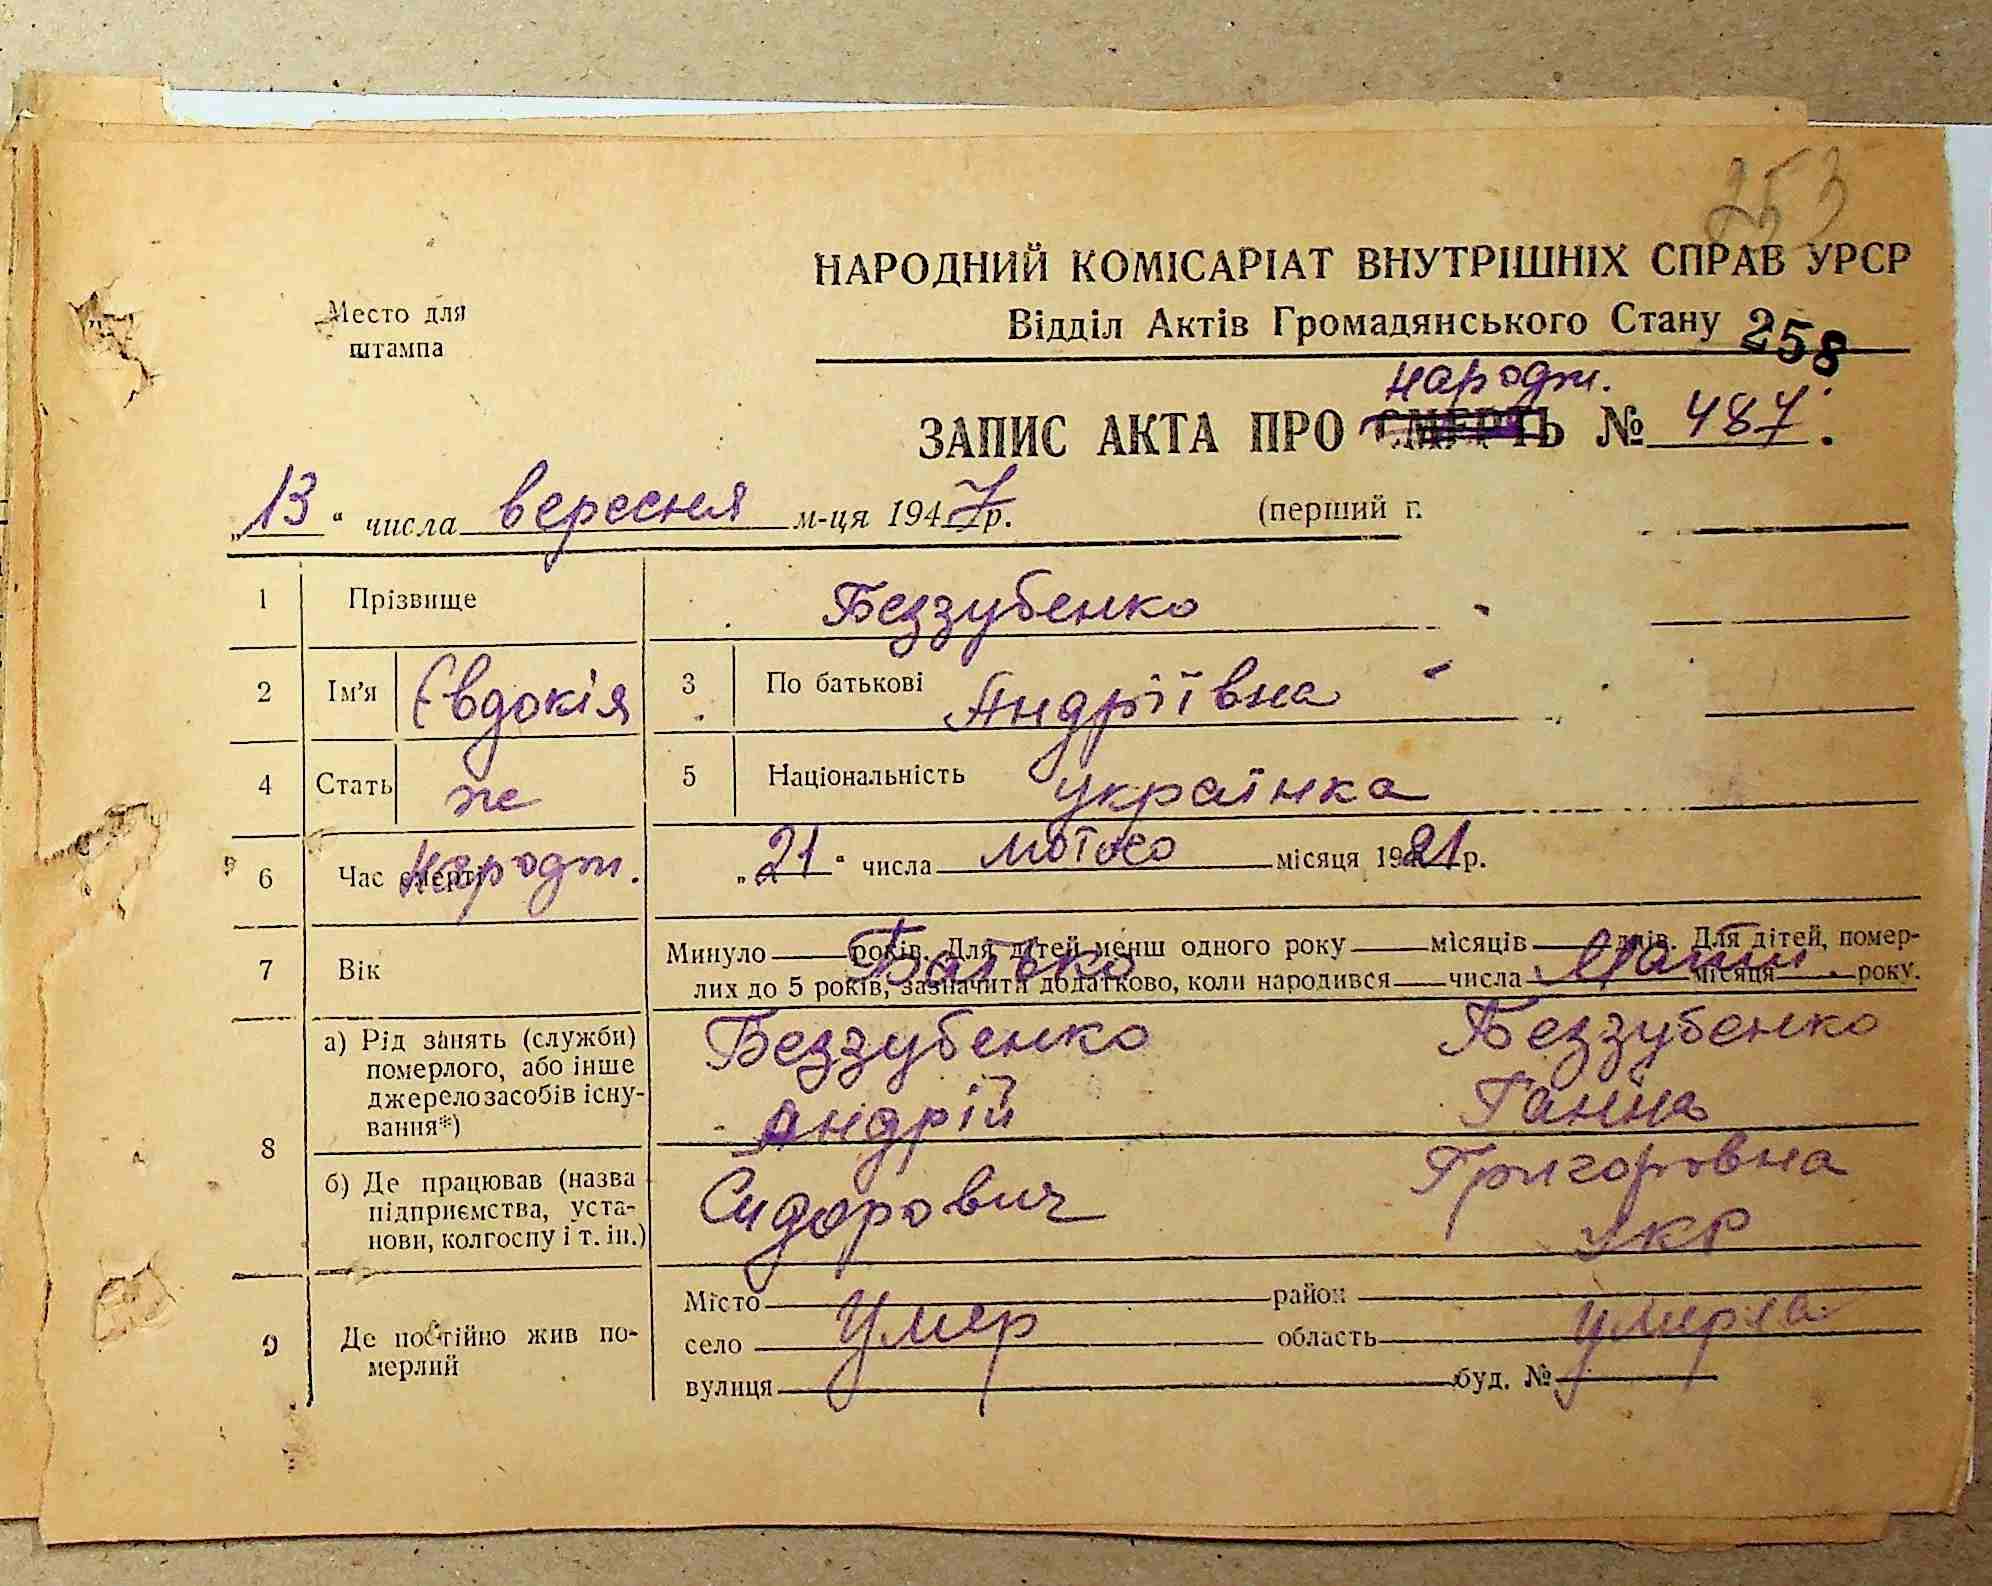 253
НАРОДНИЙ КОМІСАРІАТ ВНУТРІШНІХ СПРАВ УРСР
Место для штампа
Відділ Актів Громадянського Стану 258
народж.
ЗАПИС АКТА ПРО СМЕРТЬ № 487.
„13“ числа вересня м-ця 1947р. (перший г.
1 Прізвище Беззубенко
2 Ім'я Євдокія 3 По батькові Андріївна
4 Стать ж 5 Національність українка
6 Час смерті народж. „21“ числа лютого місяця 1921 р.
7 Вік Минуло років. Для дітей менш одного року місяців днів. Для дітей, помер-
лих до 5 років, зазначити додатково, коли народився числа місяця року.
Батько Мати
8 а) Рід занять (служби) померлого, або інше джерело засобів існу-вання*)
Беззубенко Беззубенко
Андрій Ганна
б) Де працював (назва підприємства, уста-нови, колгоспу і т. ін.)
Сидорович Григоровна
укр
9 Де постійно жив по-мерлий
Місто район
село Умер область умерла
вулиця буд. №